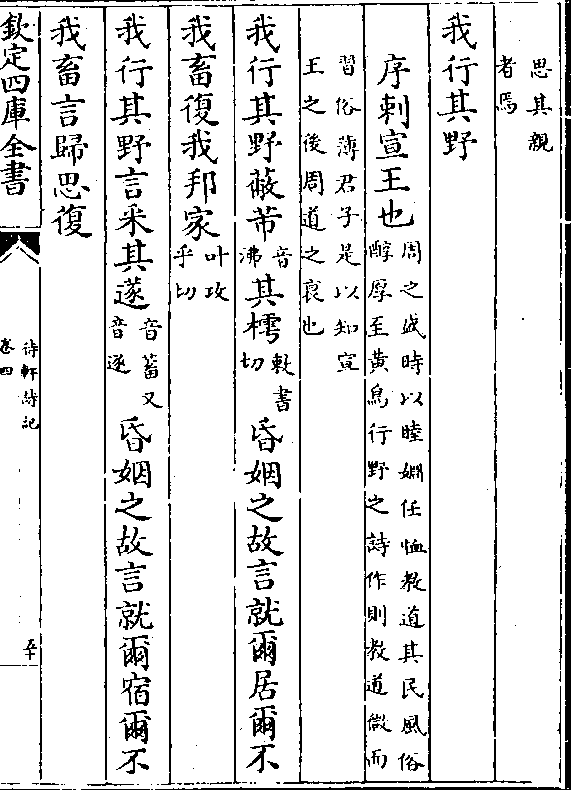 思其親
者焉
我行其野
序刺宣王也周之盛時以睦婣任恤教道其民風俗
醇厚至黄鳥行野之詩作則教道微而
習俗薄君子是以知宣
王之後周道之衰也
我行其野蔽芾音沸其樗敕書切昏姻之故言就爾居爾不
我畜復我邦家叶攻乎切
我行其野言采其蓫音蓄又音逐昏姻之故言就爾宿爾不
我畜言歸思復
欽定四庫全書
待軒詩記
卷四
五十